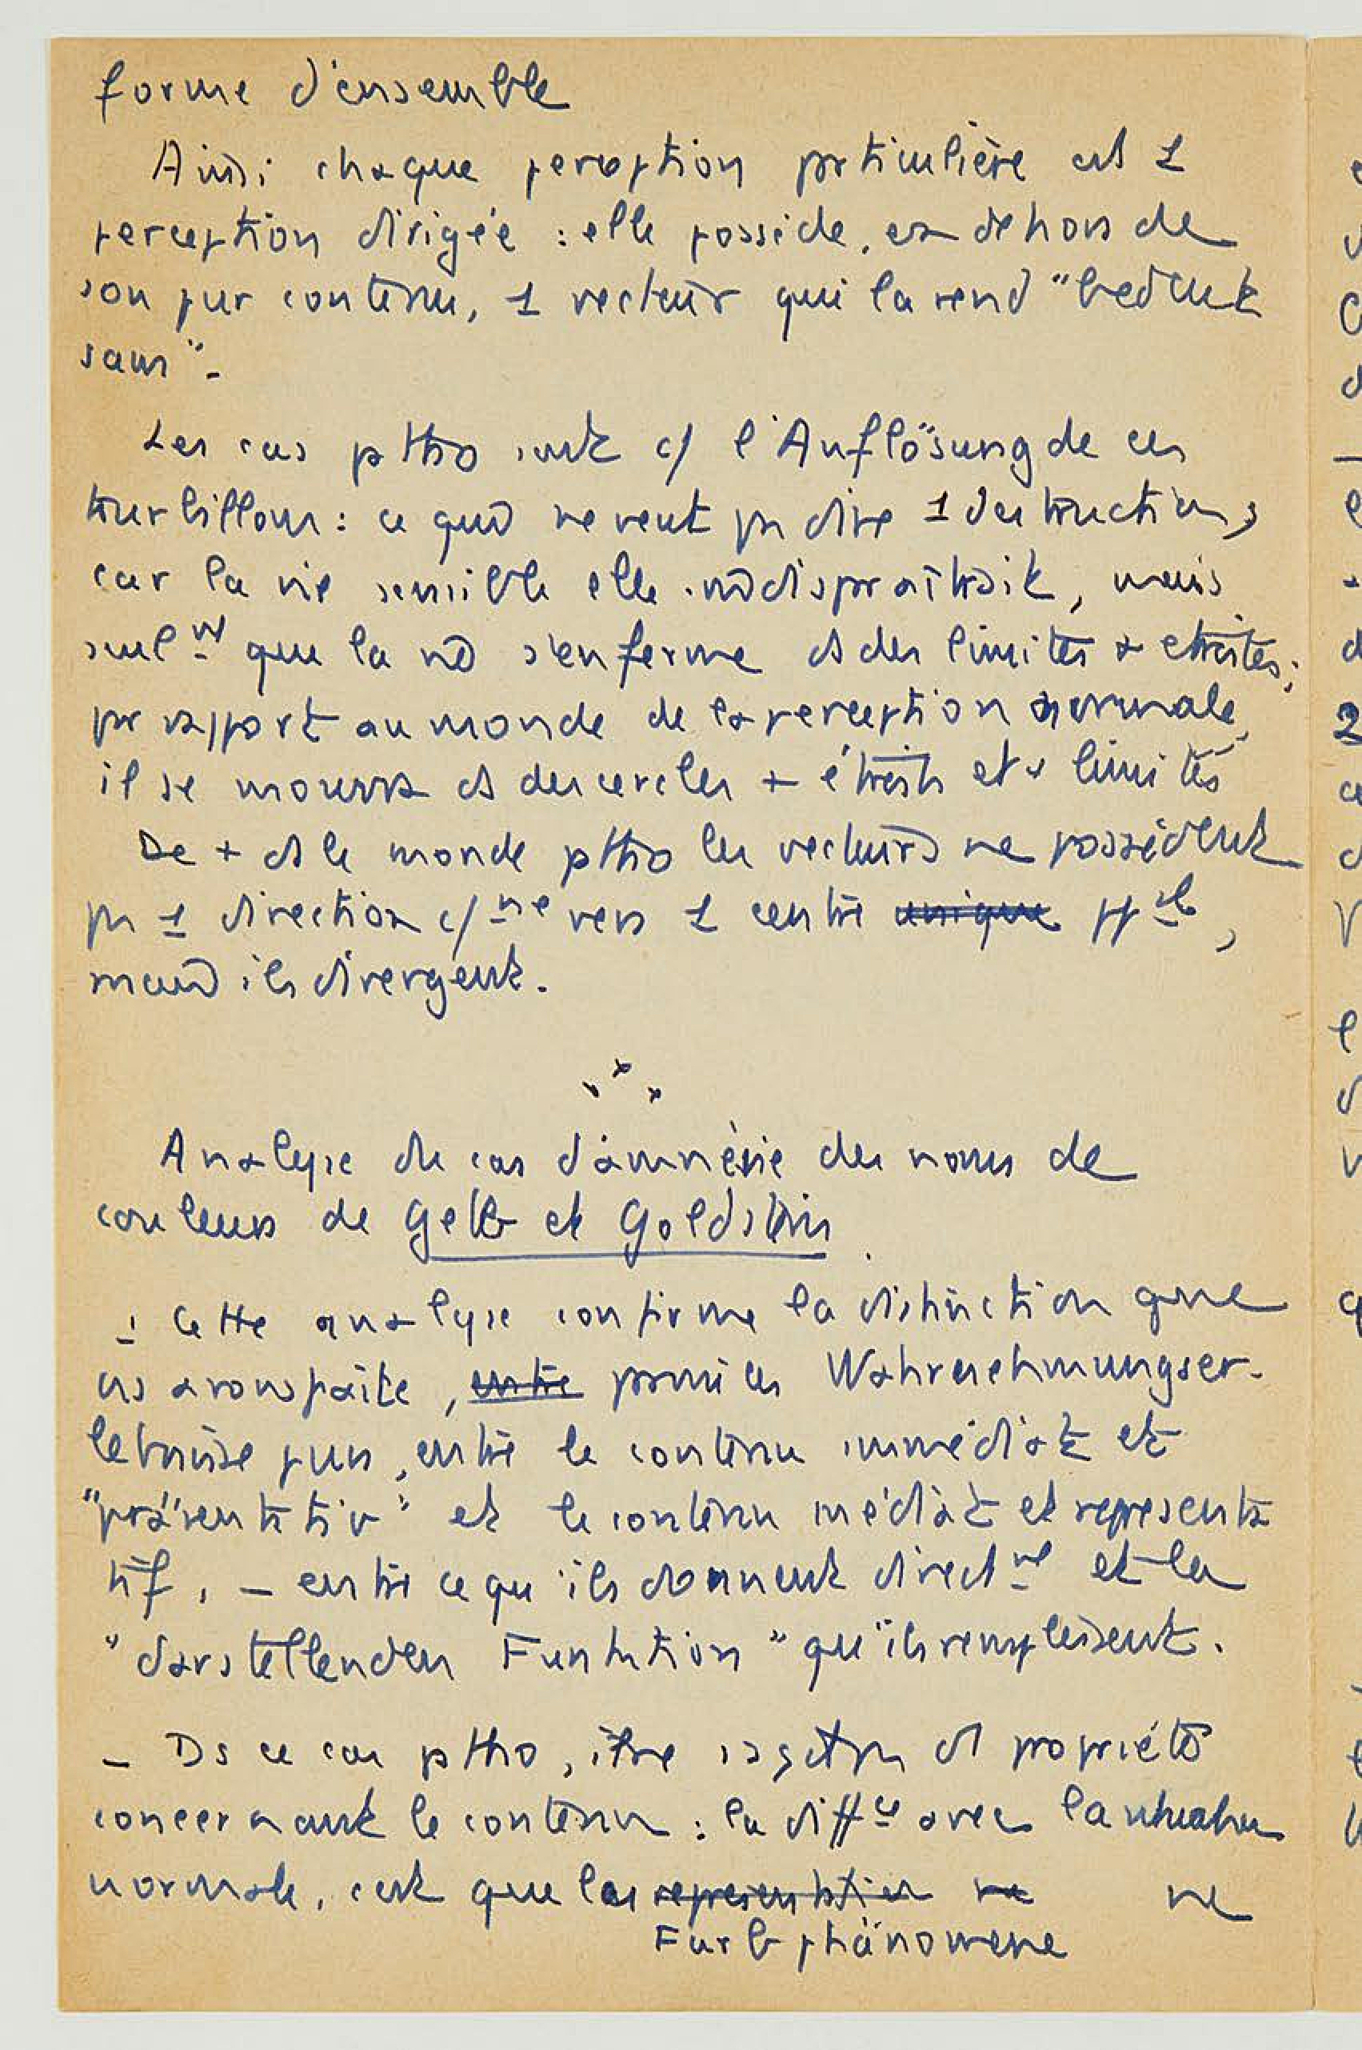 forme d'ensemble
Ainsi chaque perception prticulière est 1
perception dirigée : elle possède, en dehors de
son pur contenu, 1 vecteur qui la rend "bedeut
sam".
Les cas pttho sont c/ l'Auflösung de ces
tourbillons : ce qui ne veut ps dire 1 destruction,
car la vie sensible elle disparaîtrait, mais
seulnt que la s'enferme ds des limites + étroites;
pr rapport au monde de la perception normale,
il se mouvra ds des cercles + étroits et + limités
De + ds le monde pttho les vecteurs ne possèdent
ps 1 direction c/ne vers 1 centre unique ppal,
mais ils divergent.
Analyse du cas d'amnésie des noms de
couleurs de Gelb et Goldstein
- Cette analyse confirme la distinction que
ns avons faite, entre parmi les Wahrnehmungser-
lebnisse purs, entre le contenu immédiat et
"präsentativ" et le contenu médiat et représenta
tif, - entre ce qu'ils donnent directnt et la
"darstellenden Funktion" qu'ils remplissent.
- Ds ce cas pttho, il ne s'agit ps d propriétés
concernant le contenu : la diffce avec la
normale, c'est que les représentation ne ne
Farbphänomene